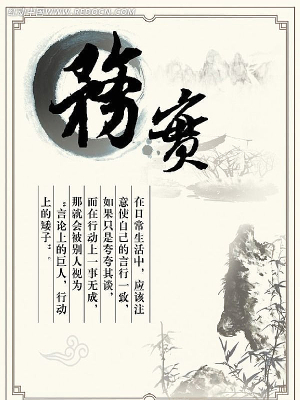 红动中国 WWW.REDOCN.COM
務實
在日常生活中，应该注
意使自己的言行一致，
如果只是夸夸其谈，
而在行动上一事无成，
那就会被别人视为
“言论上的巨人，行动
上的矮子”。